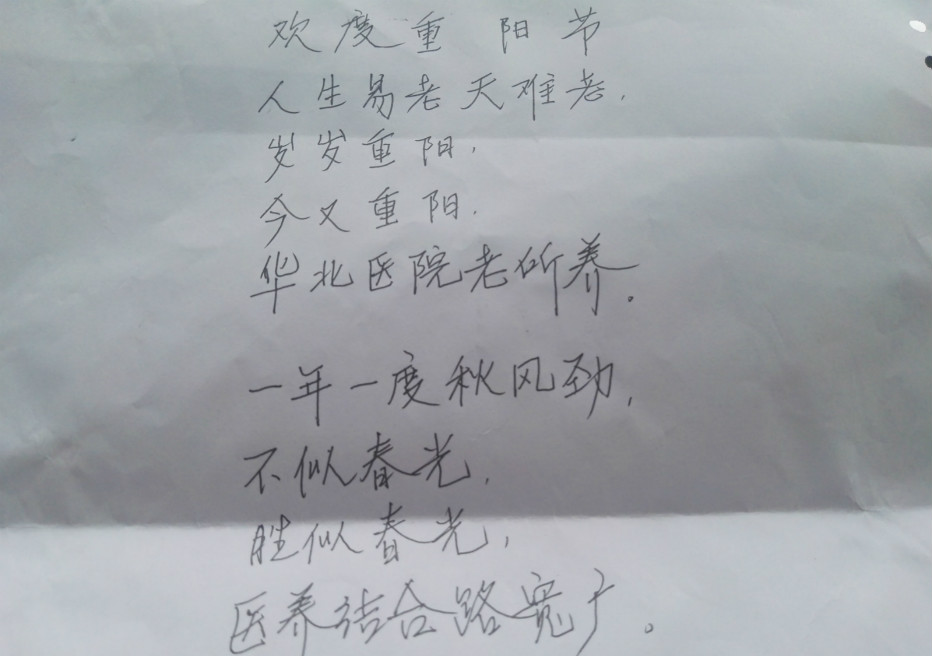 欢度重阳节
人生易老天难老，
岁岁重阳，
今又重阳，
华北医院老所养。
一年一度秋风劲，
不似春光，
胜似春光，
医养结合路宽广。